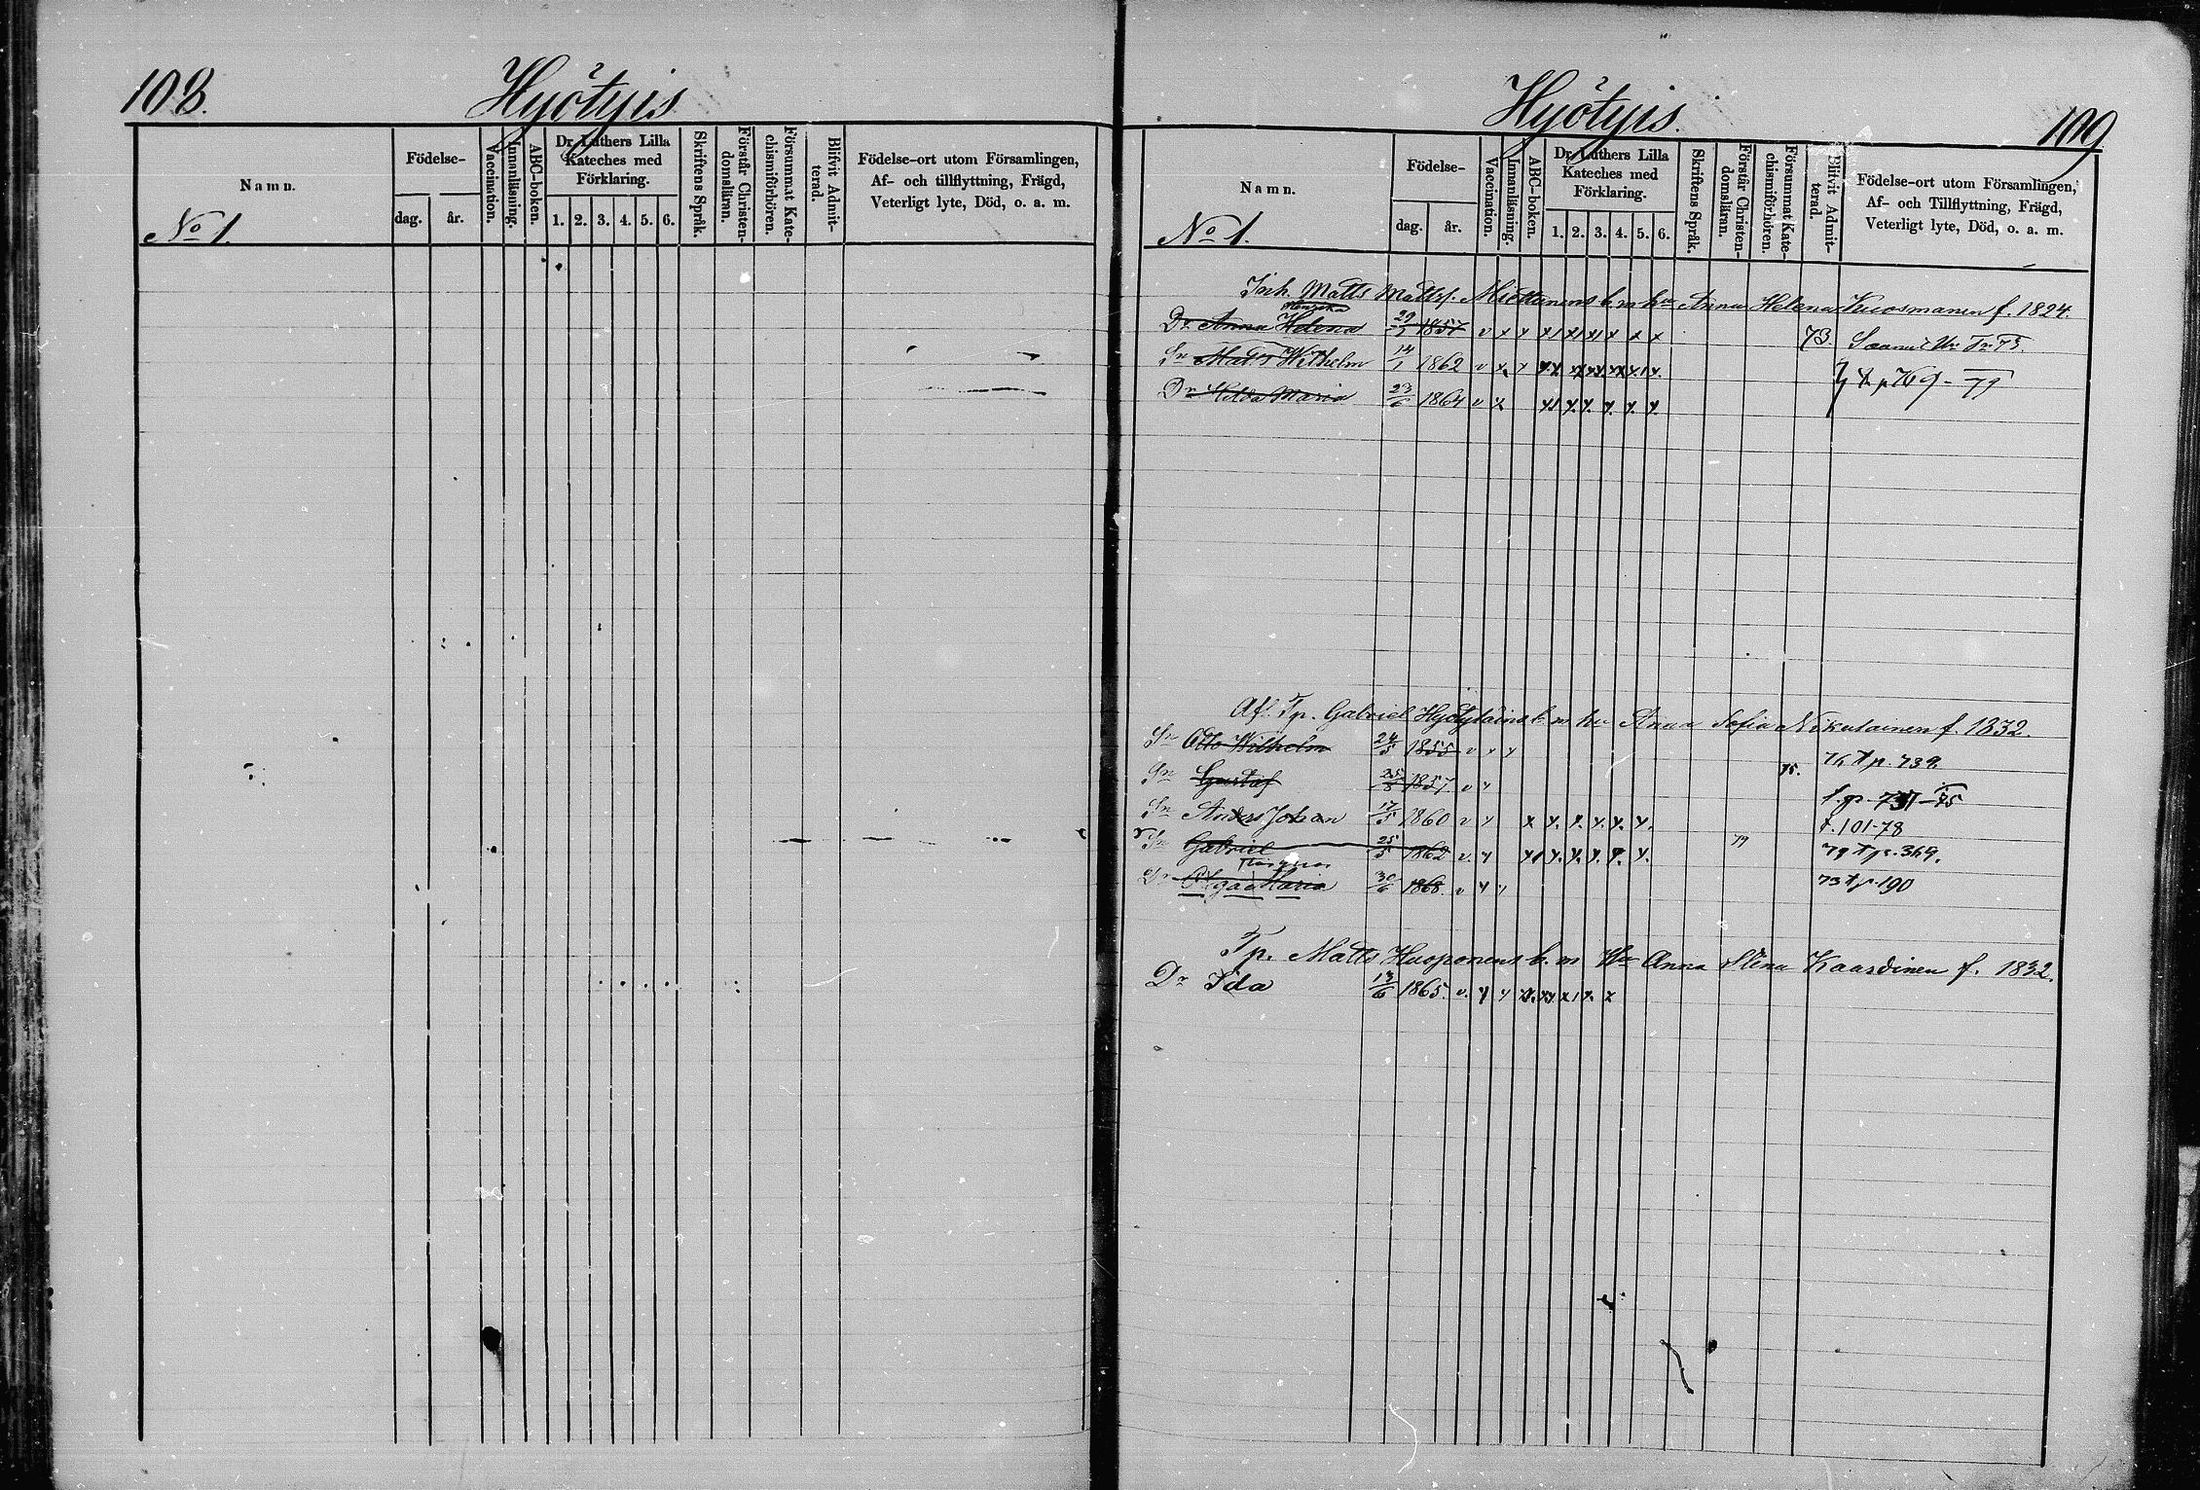 108.
Hyötyis
Namn.
Födelse-
dag.
år.
Vaccination.
Innanläsning.
ABC-boken.
Dr. Luthers Lilla
Kateches med
Förklaring.
1. 2. 3. 4. 5. 6.
Skriftens Språk.
Förstår Christen-
domsläran.
Försummat Kate-
chismiförhören.
Blifvit Admit-
terad.
Födelse-ort utom Församlingen,
Af- och tillflyttning, Frägd,
Veterligt lyte, Död, o. a. m.
No 1.
Hyötyis.
109
Namn.
Födelse-
dag.
år.
Vaccination.
Innanläsning.
ABC-boken.
Dr. Luthers Lilla
Kateches med
Förklaring.
1. 2. 3. 4. 5. 6.
Skriftens Språk.
Förstår Christen-
domsläran.
Försummat Kate-
chismiförhören.
Blifvit Admit-
terad.
Födelse-ort utom Församlingen,
Af- och Tillflyttning, Frägd,
Veterligt lyte, Död, o. a. m.
No 1.
Inh. Matts Mattss. Miettinens b. m. hu Anna Helena Kuosmanen f. 1824.
Dr Anna Helena 29/1 1857 v x x x1 x1 x1 x x x 73.
Sn Matts Wilhelm 14/1 1862 v x x
Dr Hilda Maria 23/6 1864 v x
Afl. Tp. Gabriel Hyötyläinens b. m. hu Anna Sofia Nikulainen f. 1832.
Sn Otto Wilhelm 24/5 1855 v x x 74 t p. 739.
Sn Gustaf 25/8 1857 v x 75.
Sn Anders Johan 17/5 1860 v x x x. x. x. x. x. t. 101-78
Sn Gabriel 25/5 1862 v. x x1 x. x. x. x. x. 79 79 t p. 369.
Dr Olga Maria 30/6 1868 v x x 73 t p. 190
Tp. Matts Huoponens b. m. Hu Anna Stina Kaasdinen f. 1832.
Dr Ida 13/6 1865. v. x x